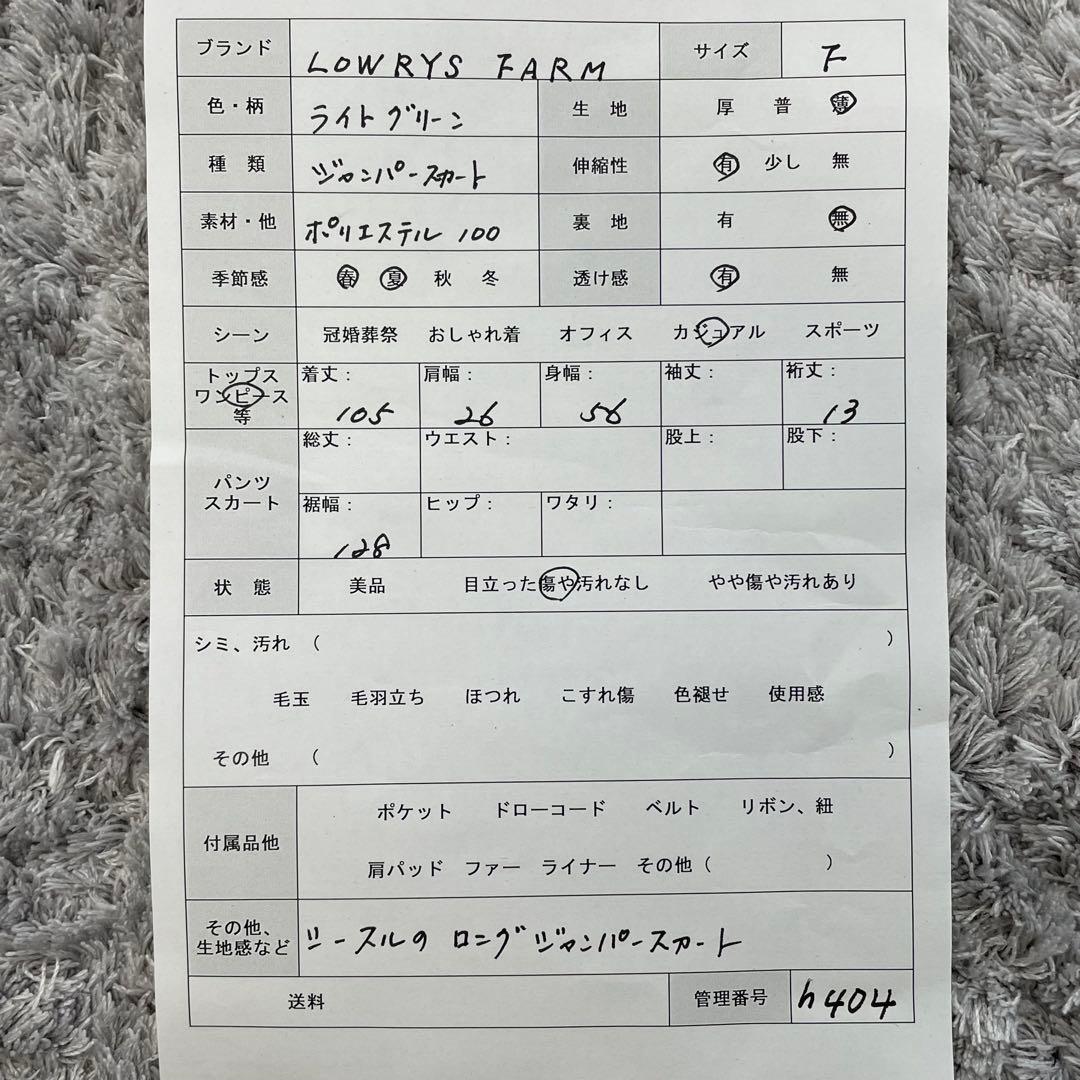 ブランド LOWRYS FARM サイズ F
色・柄 ライトグリーン 生 地 厚 普 薄
種 類 ジャンパースカート 伸縮性 有 少し 無
素材・他 ポリエステル 100 裏 地 有 無
季節感 春 夏 秋 冬 透け感 有 無
シーン 冠婚葬祭 おしゃれ着 オフィス カジュアル スポーツ
トップス
ワンピース
等
着丈: 肩幅: 身幅: 袖丈: 裄丈:
105 26 56 13
パンツ
スカート
総丈: ウエスト: 股上: 股下:
裾幅: ヒップ: ワタリ:
128
状 態 美品 目立った傷や汚れなし やや傷や汚れあり
シミ、汚れ ( )
毛玉 毛羽立ち ほつれ こすれ傷 色褪せ 使用感
その他 ( )
付属品他
ポケット ドローコード ベルト リボン、紐
肩パッド ファー ライナー その他 ( )
その他、
生地感など
シースルの ロングジャンパースカート
送料 管理番号 h404